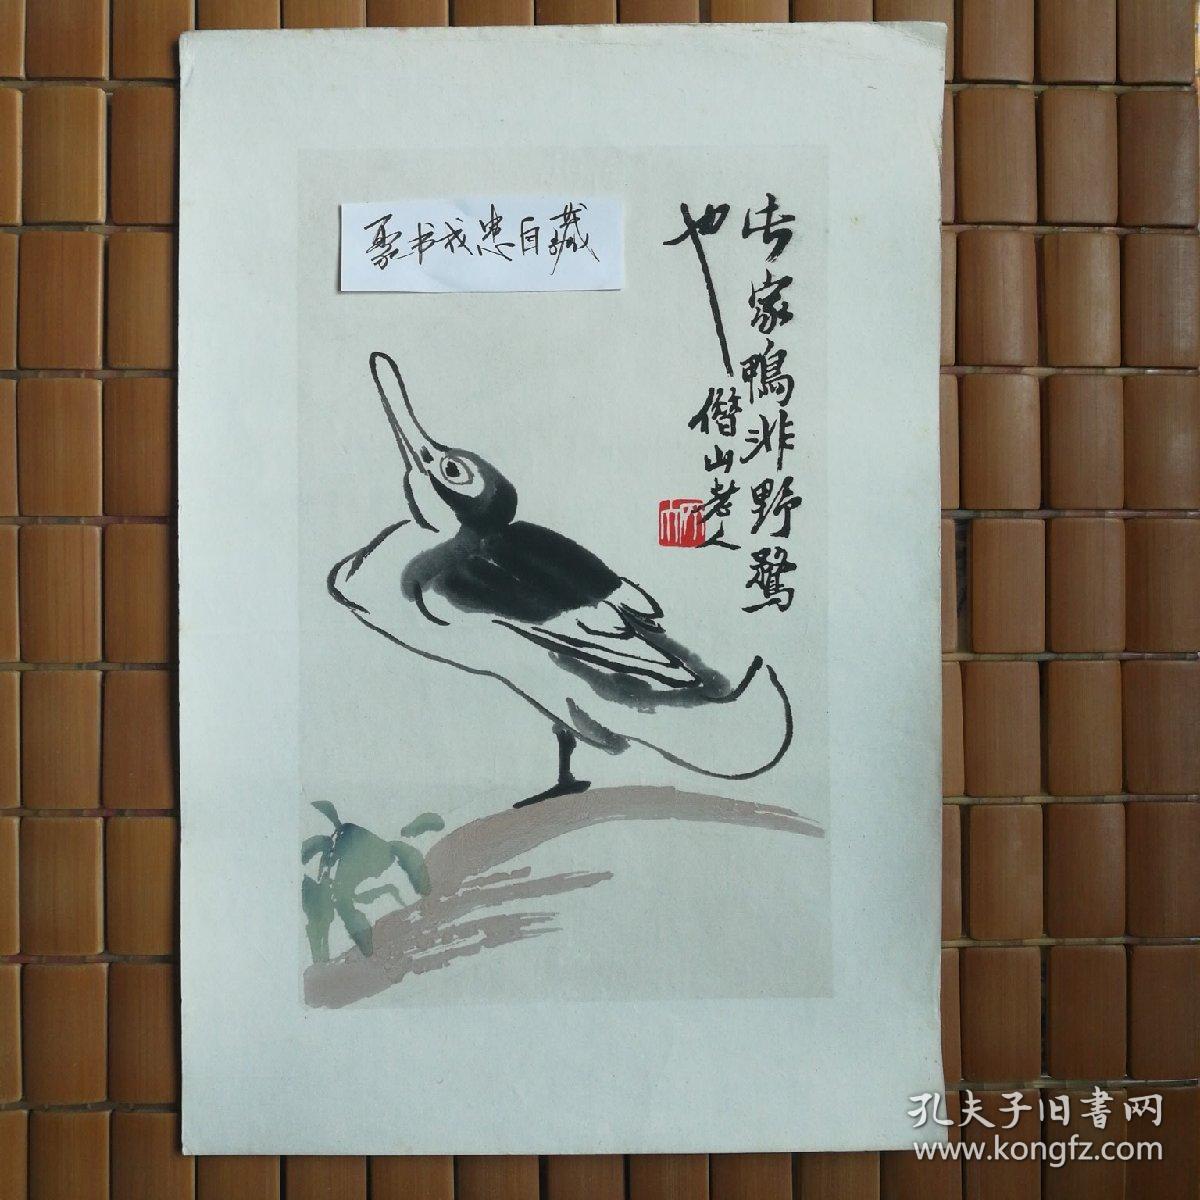 古家鴨非野鶩
也
借山老人
書我患自藏
孔夫子旧書网
www.kongfz.com